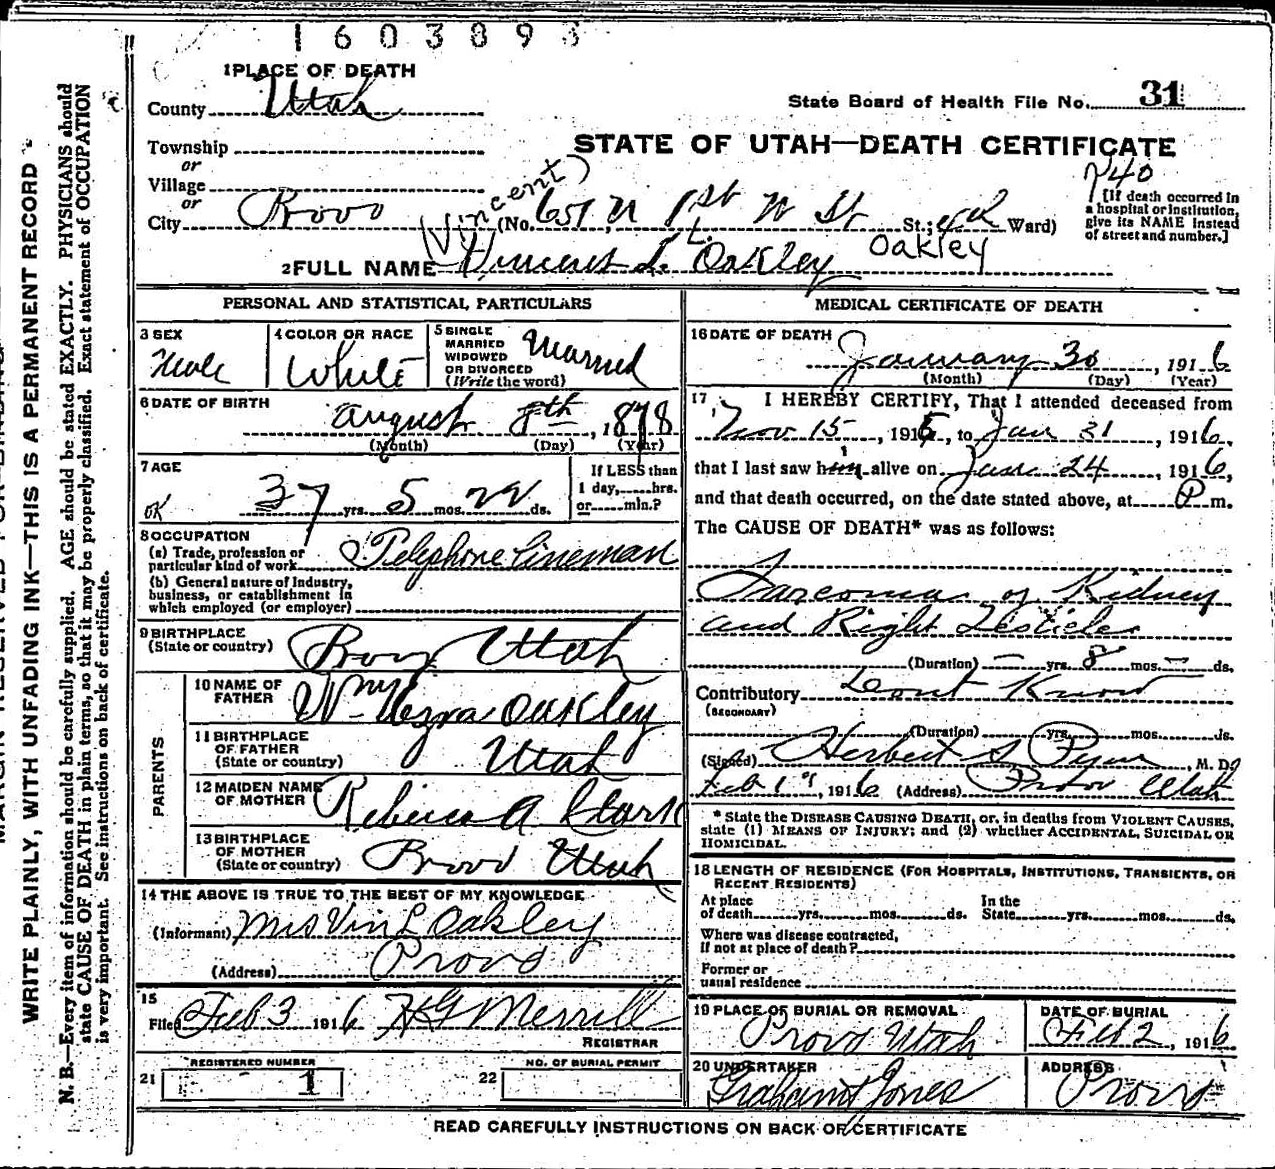 1603893
1 PLACE OF DEATH
County Utah
State Board of Health File No. 31
Township
or
Village
or
City Provo
STATE OF UTAH—DEATH CERTIFICATE
740
(Vincent)
(No. 651 N 1st W St St.; 4th Ward)
[If death occurred in
a hospital or institution,
give its NAME instead
of street and number.]
2 FULL NAME Vincent L. Oakley Oakley
L.
PERSONAL AND STATISTICAL PARTICULARS
3 SEX
Male
4 COLOR OR RACE
White
5 SINGLE
MARRIED
WIDOWED
OR DIVORCED
(Write the word)
Married
6 DATE OF BIRTH
August 8th, 1878
(Month) (Day) (Year)
7 AGE
OK 37 yrs. 5 mos. 22 ds.
If LESS than
1 day,.....hrs.
or.....min.?
8 OCCUPATION
(a) Trade, profession or
particular kind of work Telephone Lineman
(b) General nature of Industry,
business, or establishment in
which employed (or employer)
9 BIRTHPLACE
(State or country) Provo Utah
PARENTS
10 NAME OF
FATHER Wm Oakley
11 BIRTHPLACE
OF FATHER
(State or country) Utah
12 MAIDEN NAME
OF MOTHER Rebecca A
13 BIRTHPLACE
OF MOTHER
(State or country) Provo Utah
14 THE ABOVE IS TRUE TO THE BEST OF MY KNOWLEDGE
(Informant) Mrs Vin L Oakley
(Address) Provo
15
Filed Feb 3 1916 H G Merrill
REGISTRAR
REGISTERED NUMBER
21 1
NO. OF BURIAL PERMIT
22
MEDICAL CERTIFICATE OF DEATH
16 DATE OF DEATH
January 30, 1916
(Month) (Day) (Year)
17 I HEREBY CERTIFY, That I attended deceased from
Nov 15, 1915, to Jan 31, 1916,
that I last saw him alive on Jan 24, 1916,
and that death occurred, on the date stated above, at P m.
The CAUSE OF DEATH* was as follows:
Sarcoma of Kidney
and Right Testicle
(Duration) — yrs. 8 mos. — ds.
Contributory Dont Know
(SECONDARY)
(Duration) yrs. mos. ds.
(Signed) Herbert S. Pyne, M. D.
Feb 1st, 1916 (Address) Provo Utah
* State the DISEASE CAUSING DEATH, or, in deaths from VIOLENT CAUSES,
state (1) MEANS OF INJURY; and (2) whether ACCIDENTAL, SUICIDAL OR
HOMICIDAL.
18 LENGTH OF RESIDENCE (FOR HOSPITALS, INSTITUTIONS, TRANSIENTS, OR
RECENT RESIDENTS)
At place
of death yrs. mos. ds.
In the
State yrs. mos. ds.
Where was disease contracted,
If not at place of death?
Former or
usual residence
19 PLACE OF BURIAL OR REMOVAL
Provo Utah
DATE OF BURIAL
Feb 2, 1916
20 UNDERTAKER
Graham & Jones
ADDRESS
Provo
READ CAREFULLY INSTRUCTIONS ON BACK OF CERTIFICATE
WRITE PLAINLY, WITH UNFADING INK—THIS IS A PERMANENT RECORD
N. B.—Every item of information should be carefully supplied. AGE should be stated EXACTLY. PHYSICIANS should
state CAUSE OF DEATH in plain terms, so that it may be properly classified. Exact statement of OCCUPATION
is very important. See instructions on back of certificate.